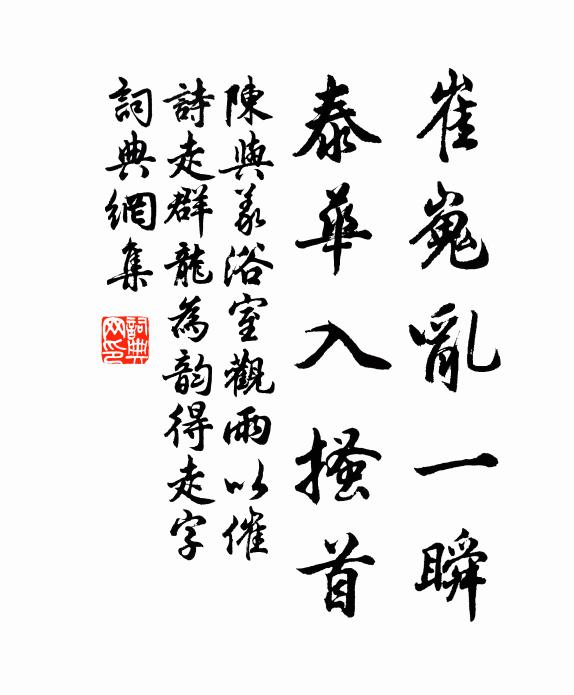 崔嵬亂一瞬
泰華入搔首
陳與義浴室觀雨以催
詩走群龍為韵得走字
詞典網集
詞典网印